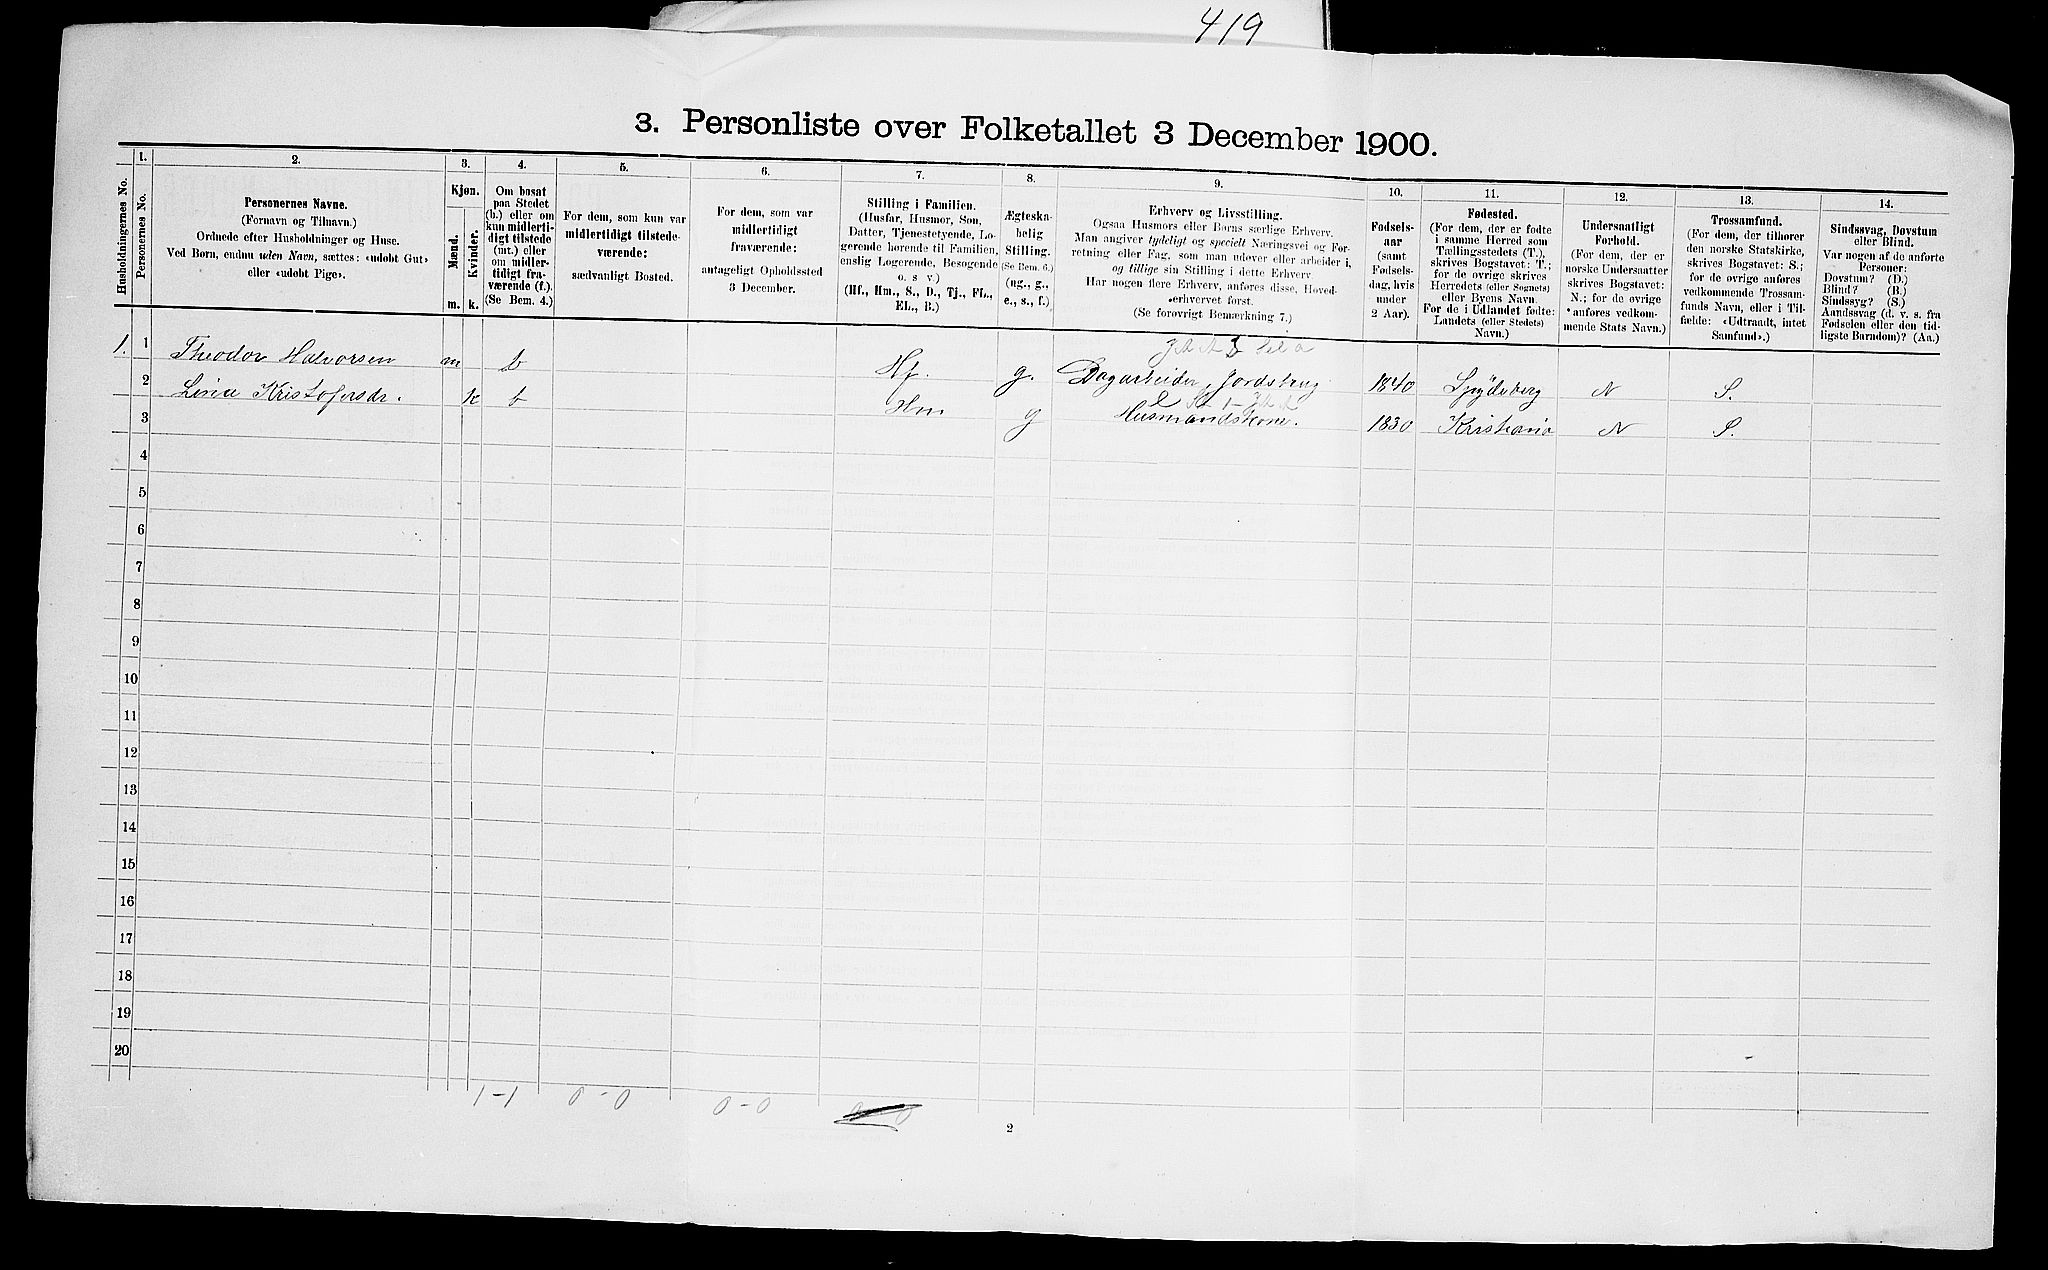 419
3. Personliste over Folketallet 3 December 1900.
Husholdningernes No.
1.
Personernes No.
2.
Personernes Navne.
(Fornavn og Tilnavn.)
Ordnede efter Husholdninger og Huse.
Ved Børn, endnu uden Navn, sættes: «udøbt Gut»
eller «udøbt Pige».
3.
Kjøn.
Mænd.
Kvinder.
m. k.
4.
Om bosat
paa Stedet
(b.) eller om
kun midlerti-
digt tilstede
(mt.) eller
om midler-
tidigt fra-
værende (f.).
(Se Bem. 4.)
5.
For dem, som kun var
midlertidigt tilstede-
værende:
sædvanligt Bosted.
6.
For dem, som var
midlertidigt
fraværende:
antageligt Opholdssted
3 December.
7.
Stilling i Familien.
(Husfar, Husmor, Søn,
Datter, Tjenestetyende, Lo-
gerende hørende til Familien,
enslig Logerende, Besøgende
o. s v.)
(Hf., Hm., S., D., Tj., FL.,
EL., B.)
8.
Ægteska-
belig
Stilling.
(Se Bem. 6.)
(ug., g.,
e., s., f.)
9.
Erhverv og Livsstilling.
Ogsaa Husmors eller Børns særlige Erhverv.
Man angiver tydeligt og specielt Næringsvei og For-
retning eller Fag, som man udøver eller arbeider i,
og tillige sin Stilling i dette Erhverv.
Har nogen flere Erhverv, anføres disse, Hoved-
erhvervet først.
(Se forøvrigt Bemærkning 7.)
10.
Fødsels-
aar
(samt
Fødsels-
dag, hvis
under
2 Aar).
11.
Fødested.
(For dem, der er fødte
i samme Herred som
Tællingsstedets (T.),
skrives Bogstavet: T.;
for de øvrige skrives
Herredets (eller Sognets)
eller Byens Navn.
For de i Udlandet fødte:
Landets (eller Stedets)
Navn.)
12.
Undersaatligt
Forhold.
(For dem, der er
norske Undersaatter
skrives Bogstavet:
N.; for de øvrige
anføres vedkom-
mende Stats Navn.)
13.
Trossamfund.
(For dem, der tilhører
den norske Statskirke,
skrives Bogstavet: S.;
for de øvrige anføres
vedkommende Trossam-
funds Navn, eller i Til-
fælde: «Udtraadt, intet
Samfund».)
14.
Sindssvag, Døvstum
eller Blind.
Var nogen af de anførte
Personer:
Døvstum? (D.)
Blind? (B.)
Sindssyg? (S.)
Aandssvag (d. v. s. fra
Fødselen eller den tid-
ligste Barndom)? (Aa.)
1. 1 Theodor Halvorsen m b Hf. g. Dagarbeider, Jordbrug 1840 Spydeberg N S.
2 Lina Kristofersdr. k b Hm g Husmandskone. 1830 Kristiania N S.
3
4
5
6
7
8
9
10
11
12
13
14
15
16
17
18
19
20
1-1 0-0 0-0
2